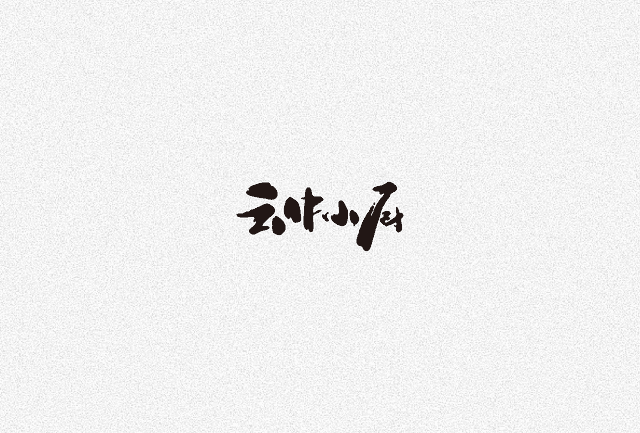 云味小厨